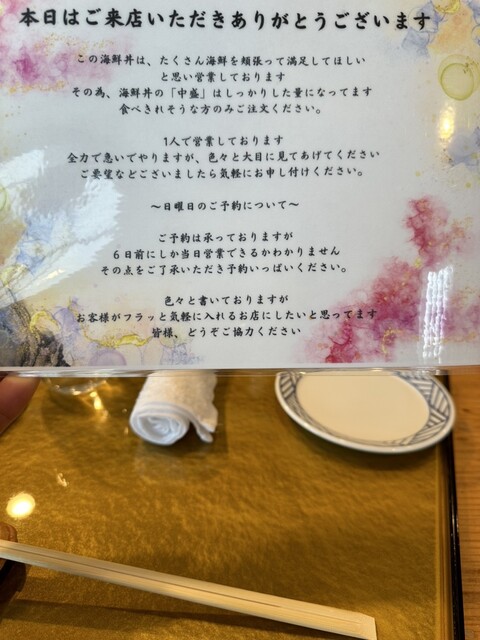 本日はご来店いただきありがとうございます
この海鮮丼は、たくさん海鮮を頬張って満足してほしい
と思い営業しております
その為、海鮮丼の「中盛」はしっかりした量になってます
食べきれそうな方のみご注文ください。
1人で営業しております
全力で急いでやりますが、色々と大目に見てあげてください
ご要望などございましたら気軽にお申し付けください。
〜日曜日のご予約について〜
ご予約は承っておりますが
６日前にしか当日営業できるかわかりません
その点をご了承いただき予約いっぱいください。
色々と書いておりますが
お客様がフラッと気軽に入れるお店にしたいと思ってます
皆様、どうぞご協力ください